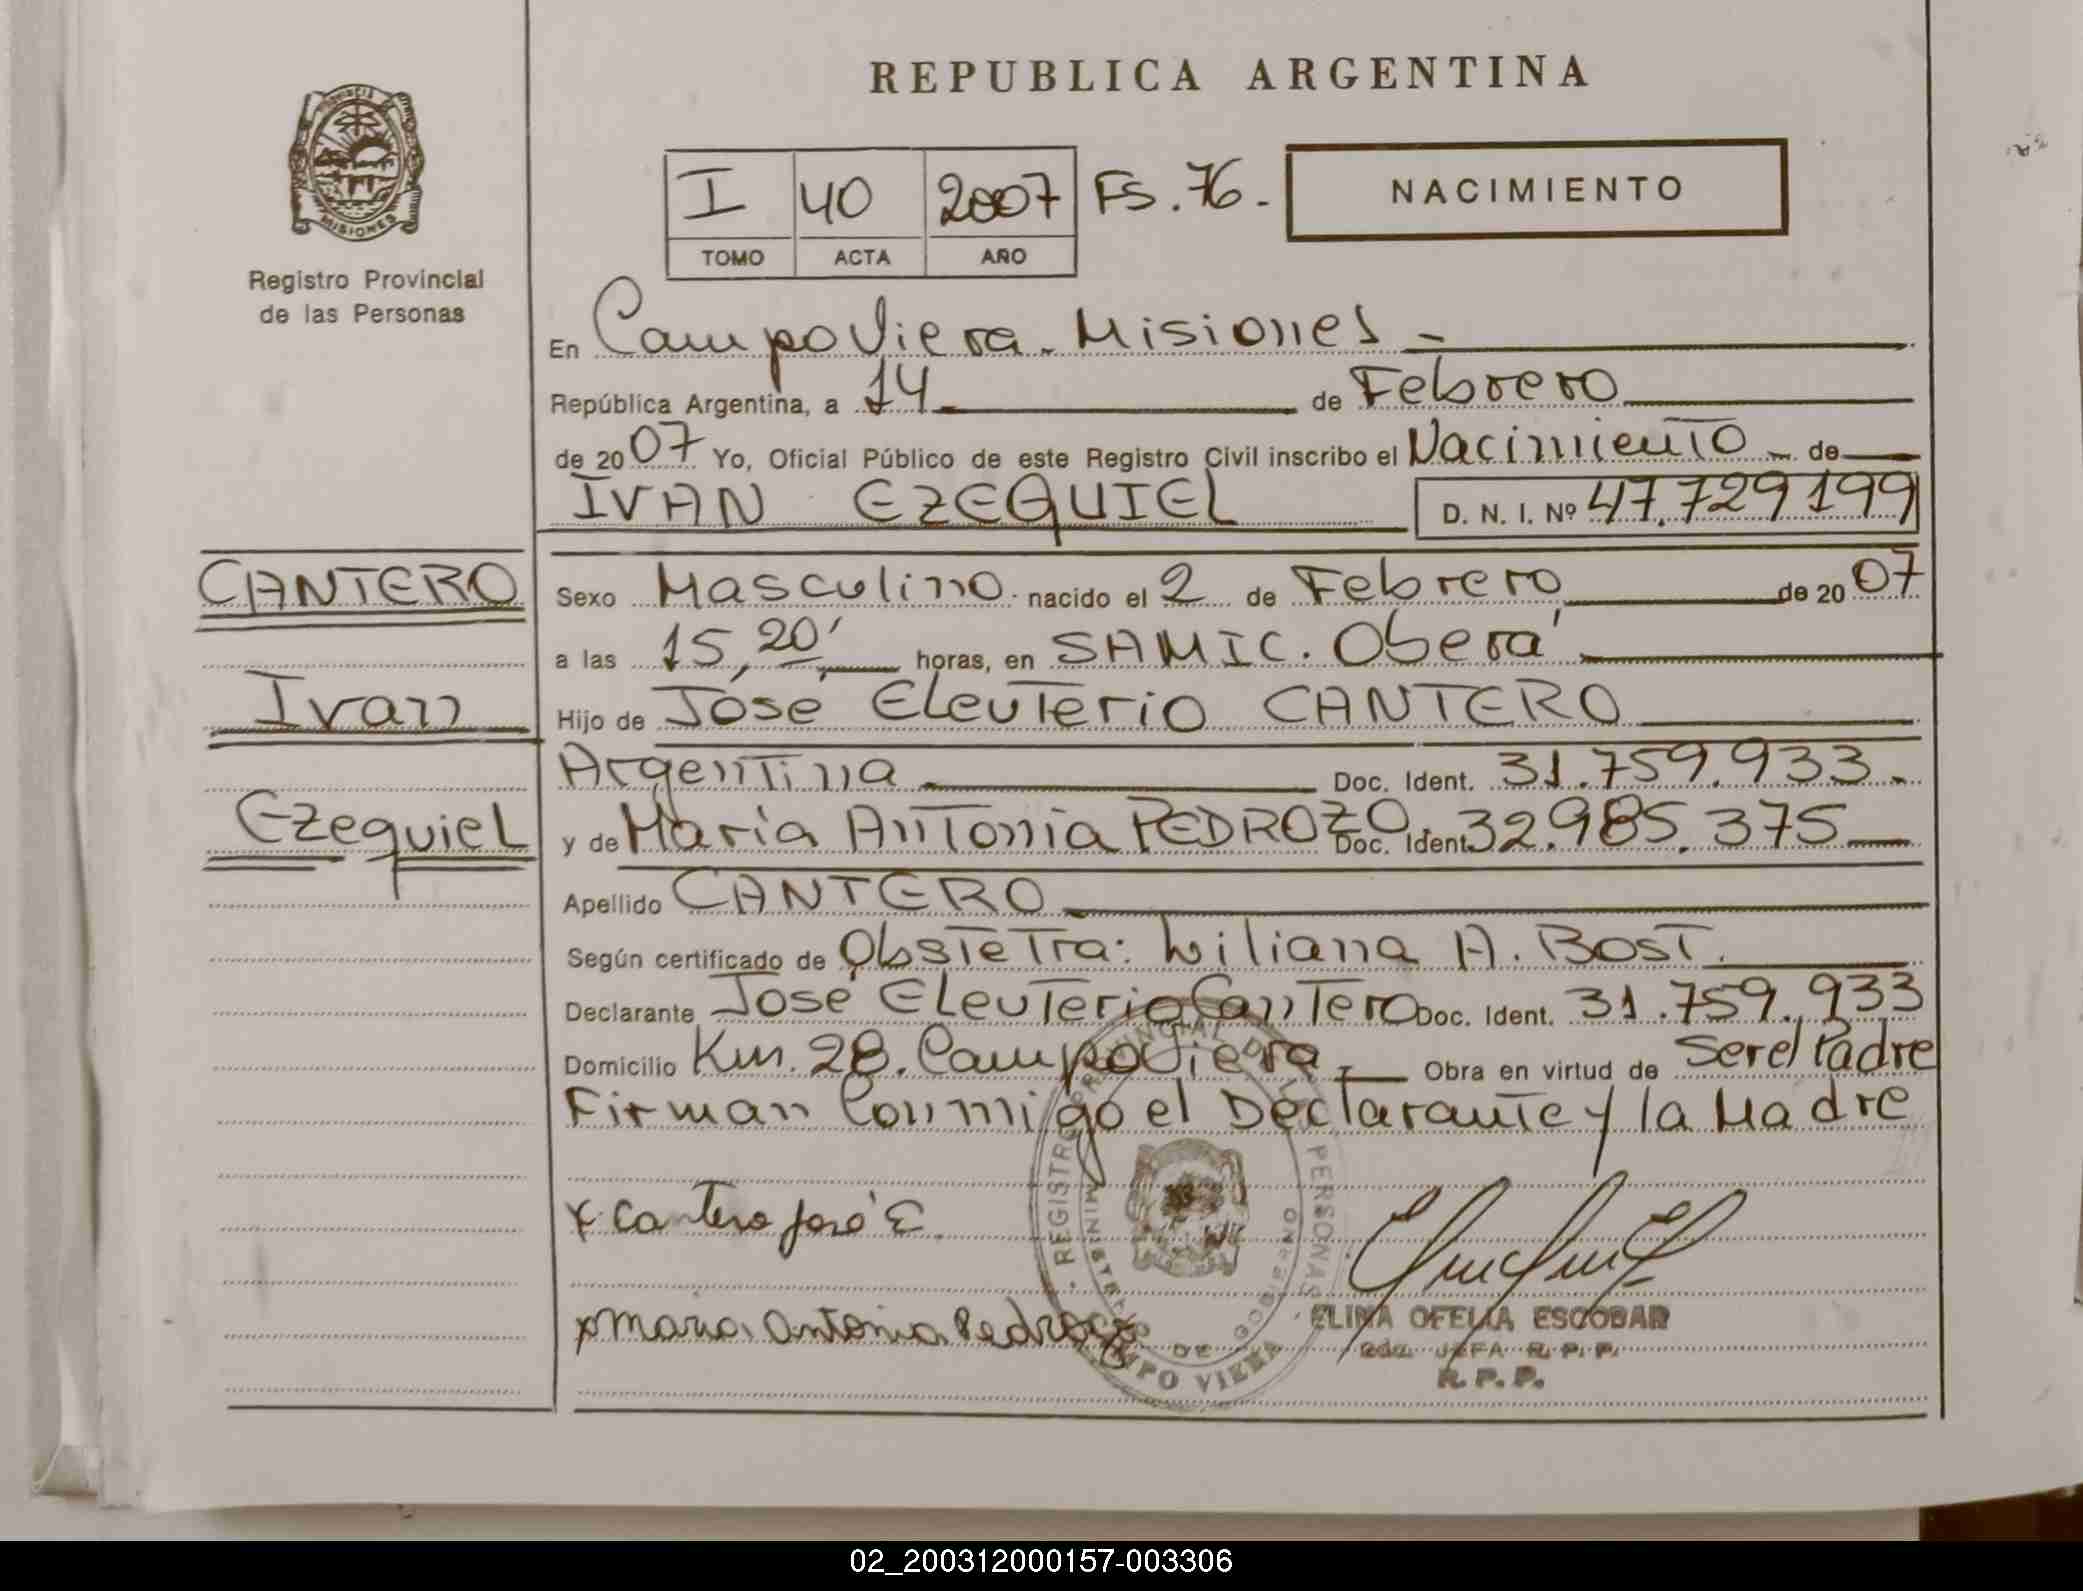 REPUBLICA ARGENTINA
PROVINCIA DE MISIONES
Registro Provincial
de las Personas
I 40 2007 FS. 76.-
TOMO ACTA AÑO
NACIMIENTO
En Campo Viera - Misiones -
República Argentina, a 14 de Febrero
de 2007 Yo, Oficial Público de este Registro Civil inscribo el Nacimiento de
IVAN EZEQUIEL D. N. I. Nº 47.729199
CANTERO
Ivan
Ezequiel
Sexo Masculino nacido el 2 de Febrero de 2007
a las 15,20' horas, en SAMIC. Oberá
Hijo de José Eleuterio CANTERO
Argentina Doc. Ident. 31.759.933.
y de María Antonia PEDROZO Doc. Ident 32.985.375
Apellido CANTERO
Según certificado de Obstetra: Liliana A. BOST.
Declarante José Eleuterio Cantero Doc. Ident. 31.759.933
Domicilio Km. 28. Campo Viera Obra en virtud de Ser el Padre
Firman Conmigo el Declarante y la Madre
x Cantero José E.
x Maria Antonia Pedrozo
REGISTRO PROVINCIAL DE LAS PERSONAS
MINISTERIO DE GOBIERNO
CAMPO VIERA
ELINA OFELIA ESCOBAR
JEFA R. P. P.
R. P. P.
02_200312000157-003306